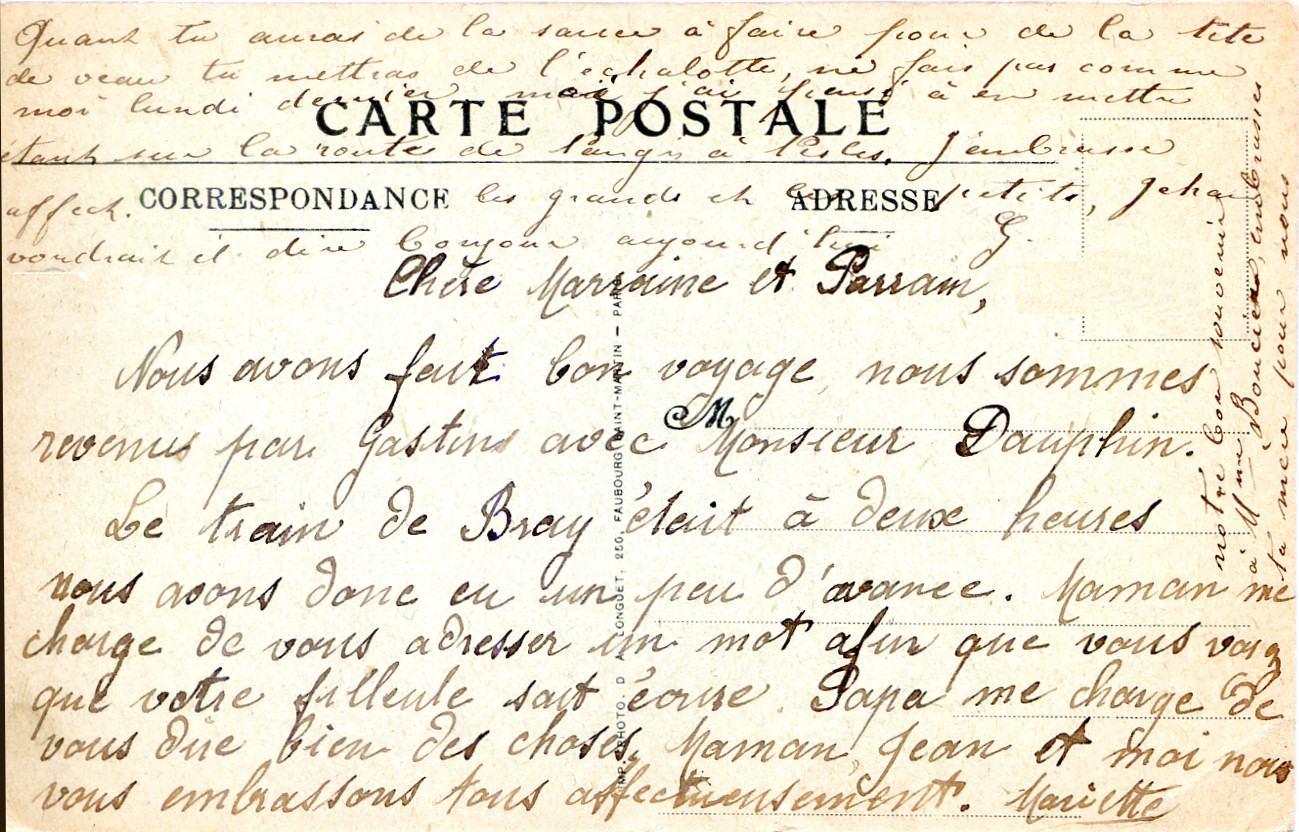 Quant tu auras de la sauce à faire pour de la tete
de veau tu mettras de l'echalotte, ne fais pas comme
moi lundi dernier moi j'ai pensé à en mettre
CARTE POSTALE
étant sur la route de Nangis à l'Esles. J'embrasse
affect. les grands et les petits, Jehan
CORRESPONDANCE
ADRESSE
voudrait il dire bonjour aujourd'hui G.
Chère Marraine et Parrain,
Nous avons fait bon voyage nous sommes
revenus par Gastins avec M Monsieur Dauphin.
Le train de Bray était à deux heures
nous avons donc eu un peu d'avance. Maman me
charge de vous adresser un mot afin que vous voyez
que votre filleule sait écrire. Papa me charge de
vous dire bien des choses, Maman, Jean et moi nous
vous embrassons tous affectueusement. Mariette
notre bon souvenir
à Mme Boucicau, embrasses
ta mère pour nous
IMP. PHOTO. D. A. LONGUET, 250, FAUBOURG SAINT-MARTIN — PARIS